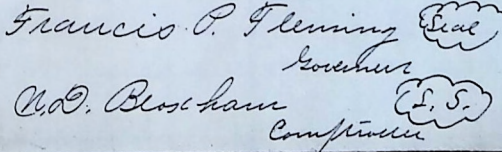 Francis P. Fleming Seal
Governor
W.D. Bloxham L. S.
Comptroller